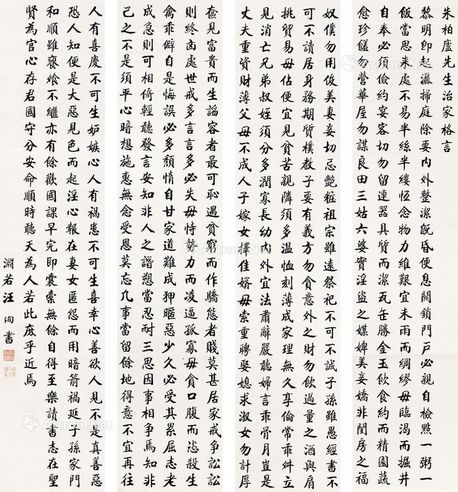 朱柏廬先生治家格言
黎明即起灑掃庭除要內外整潔既昏便息關鎖門户必親自檢點一粥一
飯當思來處不易半絲半縷恆念物力維艱宜未雨而綢繆毋臨渴而掘井
自奉必須儉約宴客切勿留連器具質而潔瓦缶勝金玉飲食約而精園蔬
愈珍饈勿營華屋勿謀良田三姑六婆實淫盜之媒婢美妾嬌非閨房之福
奴僕勿用俊美妻妾切忌艷粧祖宗雖遠祭祀不可不誠子孫雖愚經書不
可不讀居身務期質樸教子要有義方勿貪意外之財勿飲過量之酒與肩
挑貿易毋佔便宜見貧苦親鄰須多溫恤刻薄成家理無久享倫常乖舛立
見消亡兄弟叔姪須分多潤寡長幼內外宜法肅辭嚴聽婦言乖骨肉豈是
丈夫重資財薄父母不成人子嫁女擇佳婿毋索重聘娶媳求淑女勿計厚
奩見富貴而生諂容者最可恥遇貧窮而作驕態者賤莫甚居家戒爭訟訟
則終凶處世戒多言言多必失毋恃勢力而凌逼孤寡毋貪口腹而恣殺生
禽乖僻自是悔誤必多頹惰自甘家道難成狎暱惡少久必受其累屈志老
成急則可相倚輕聽發言安知非人之譖愬當忍耐三思因事相爭焉知非
己之不是須平心暗想施惠無念受恩莫忘凡事當留餘地得意不宜再往
人有喜慶不可生妒嫉心人有禍患不可生喜幸心善欲人見不是真善惡
恐人知便是大惡見色而起淫心報在妻女匿怨而用暗箭禍延子孫家門
和順雖饔飧不繼亦有餘歡國課早完即囊橐無餘自得至樂讀書志在聖
賢為官心存君國守分安命順時聽天為人若此庶乎近焉
淵若汪洵書